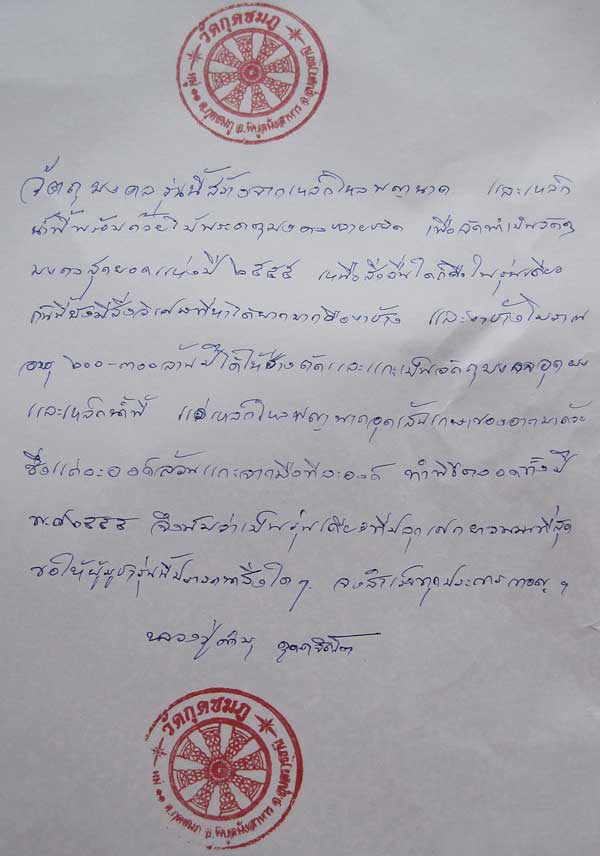 วัดกุดชมภู
หมู่ ๑๑ ต.กุดชมภู อ.พิบูลมังสาหาร จ.อุบลราชธานี
วัตถุมงคลรุ่นนี้สร้างจากเหล็กไหลพญานาค และเหล็ก
น้ำพี้พร้อมด้วย เพื่อจัดทำเป็นวัตถุ
มงคลสุดยอดแห่งปี ๒๕๕๕ รุ่นเดียว
กันนี้ยังมีสิ่งวิเศษที่หาได้ยากมากคืองาช้าง และงาช้างโบราณ
อายุ ๒๐๐-๓๐๐ล้านปีได้ให้ช่างตัดและแกะเป็นวัตถุมงคล
และเหล็กน้ำพี้ เหล็กไหลพญานาคอุดเส้นเกษาของอาตมาด้วย
ซึ่งแต่ละองค์ล้วนแกะจากมือทีละองค์ ทำพิธีตลอดทั้งปี
พ.ศ๒๕๕๕ จึงนับว่าเป็นรุ่นเดียวที่ปลุกเสกยาวนานที่สุด
ขอให้ผู้บูชารุ่นนี้ปรารถนาสิ่งใดๆ จงสำเร็จทุกประการ
หลวงปู่คำบุ คุตฺตจิตฺโต
วัดกุดชมภู
หมู่ ๑๑ ต.กุดชมภู อ.พิบูลมังสาหาร จ.อุบลราชธานี